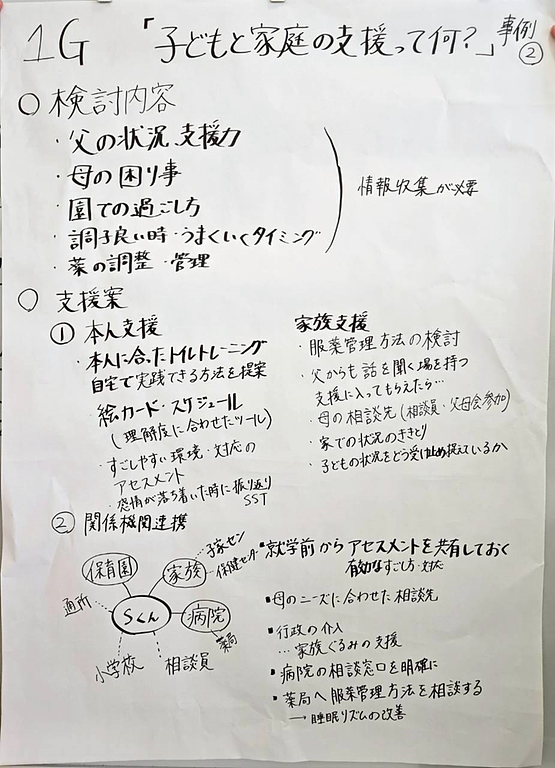 1G 「子どもと家庭の支援って何?」 事例②
○ 検討内容
・父の状況 支援力
・母の困り事
・園での過ごし方
・調子良い時・うまくいくタイミング
・薬の調整・管理
情報収集が必要
○ 支援案
① 本人支援
・本人に合ったトイレトレーニング
自宅で実践できる方法を提案
絵カード・スケジュール
(理解度に合わせたツール)
・すごしやすい環境・対応の
アセスメント
・感情が落ち着いた時に振り返り
SST
家族支援
・服薬管理方法の検討
・父からも話を聞く場を持つ
支援に入ってもらえたら…
・母の相談先(相談員・父母会参加)
・家での状況のききとり
・子どもの状況をどう受け止め捉えているか
② 関係機関連携
保育園
家族
子家セン
保健センター
通所
Sくん
病院
薬局
小学校
相談員
・就学前からアセスメントを共有しておく
有効なすごし方・対応
▪母のニーズに合わせた相談先
▪行政の介入
…家族ぐるみの支援
▪病院の相談窓口を明確に
▪薬局へ服薬管理方法を相談する
→睡眠リズムの改善